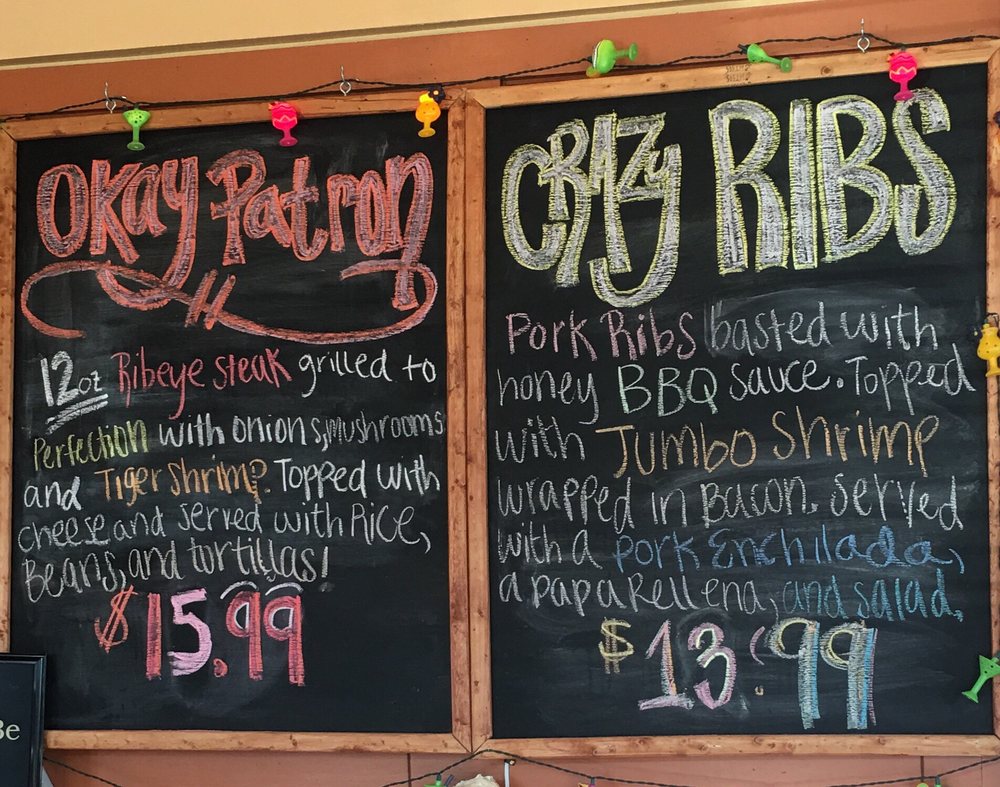 Okay Patron
12oz Ribeye steak grilled to
Perfection with onions, mushrooms
and Tiger shrimp. Topped with
cheese and served with Rice,
Beans, and tortillas!
$15.99
CRAZY RIBS
Pork Ribs basted with
honey BBQ sauce. Topped
with Jumbo Shrimp
wrapped in Bacon. Served
with a pork Enchilada,
a papa Rellena, and salad.
$13.99
Be